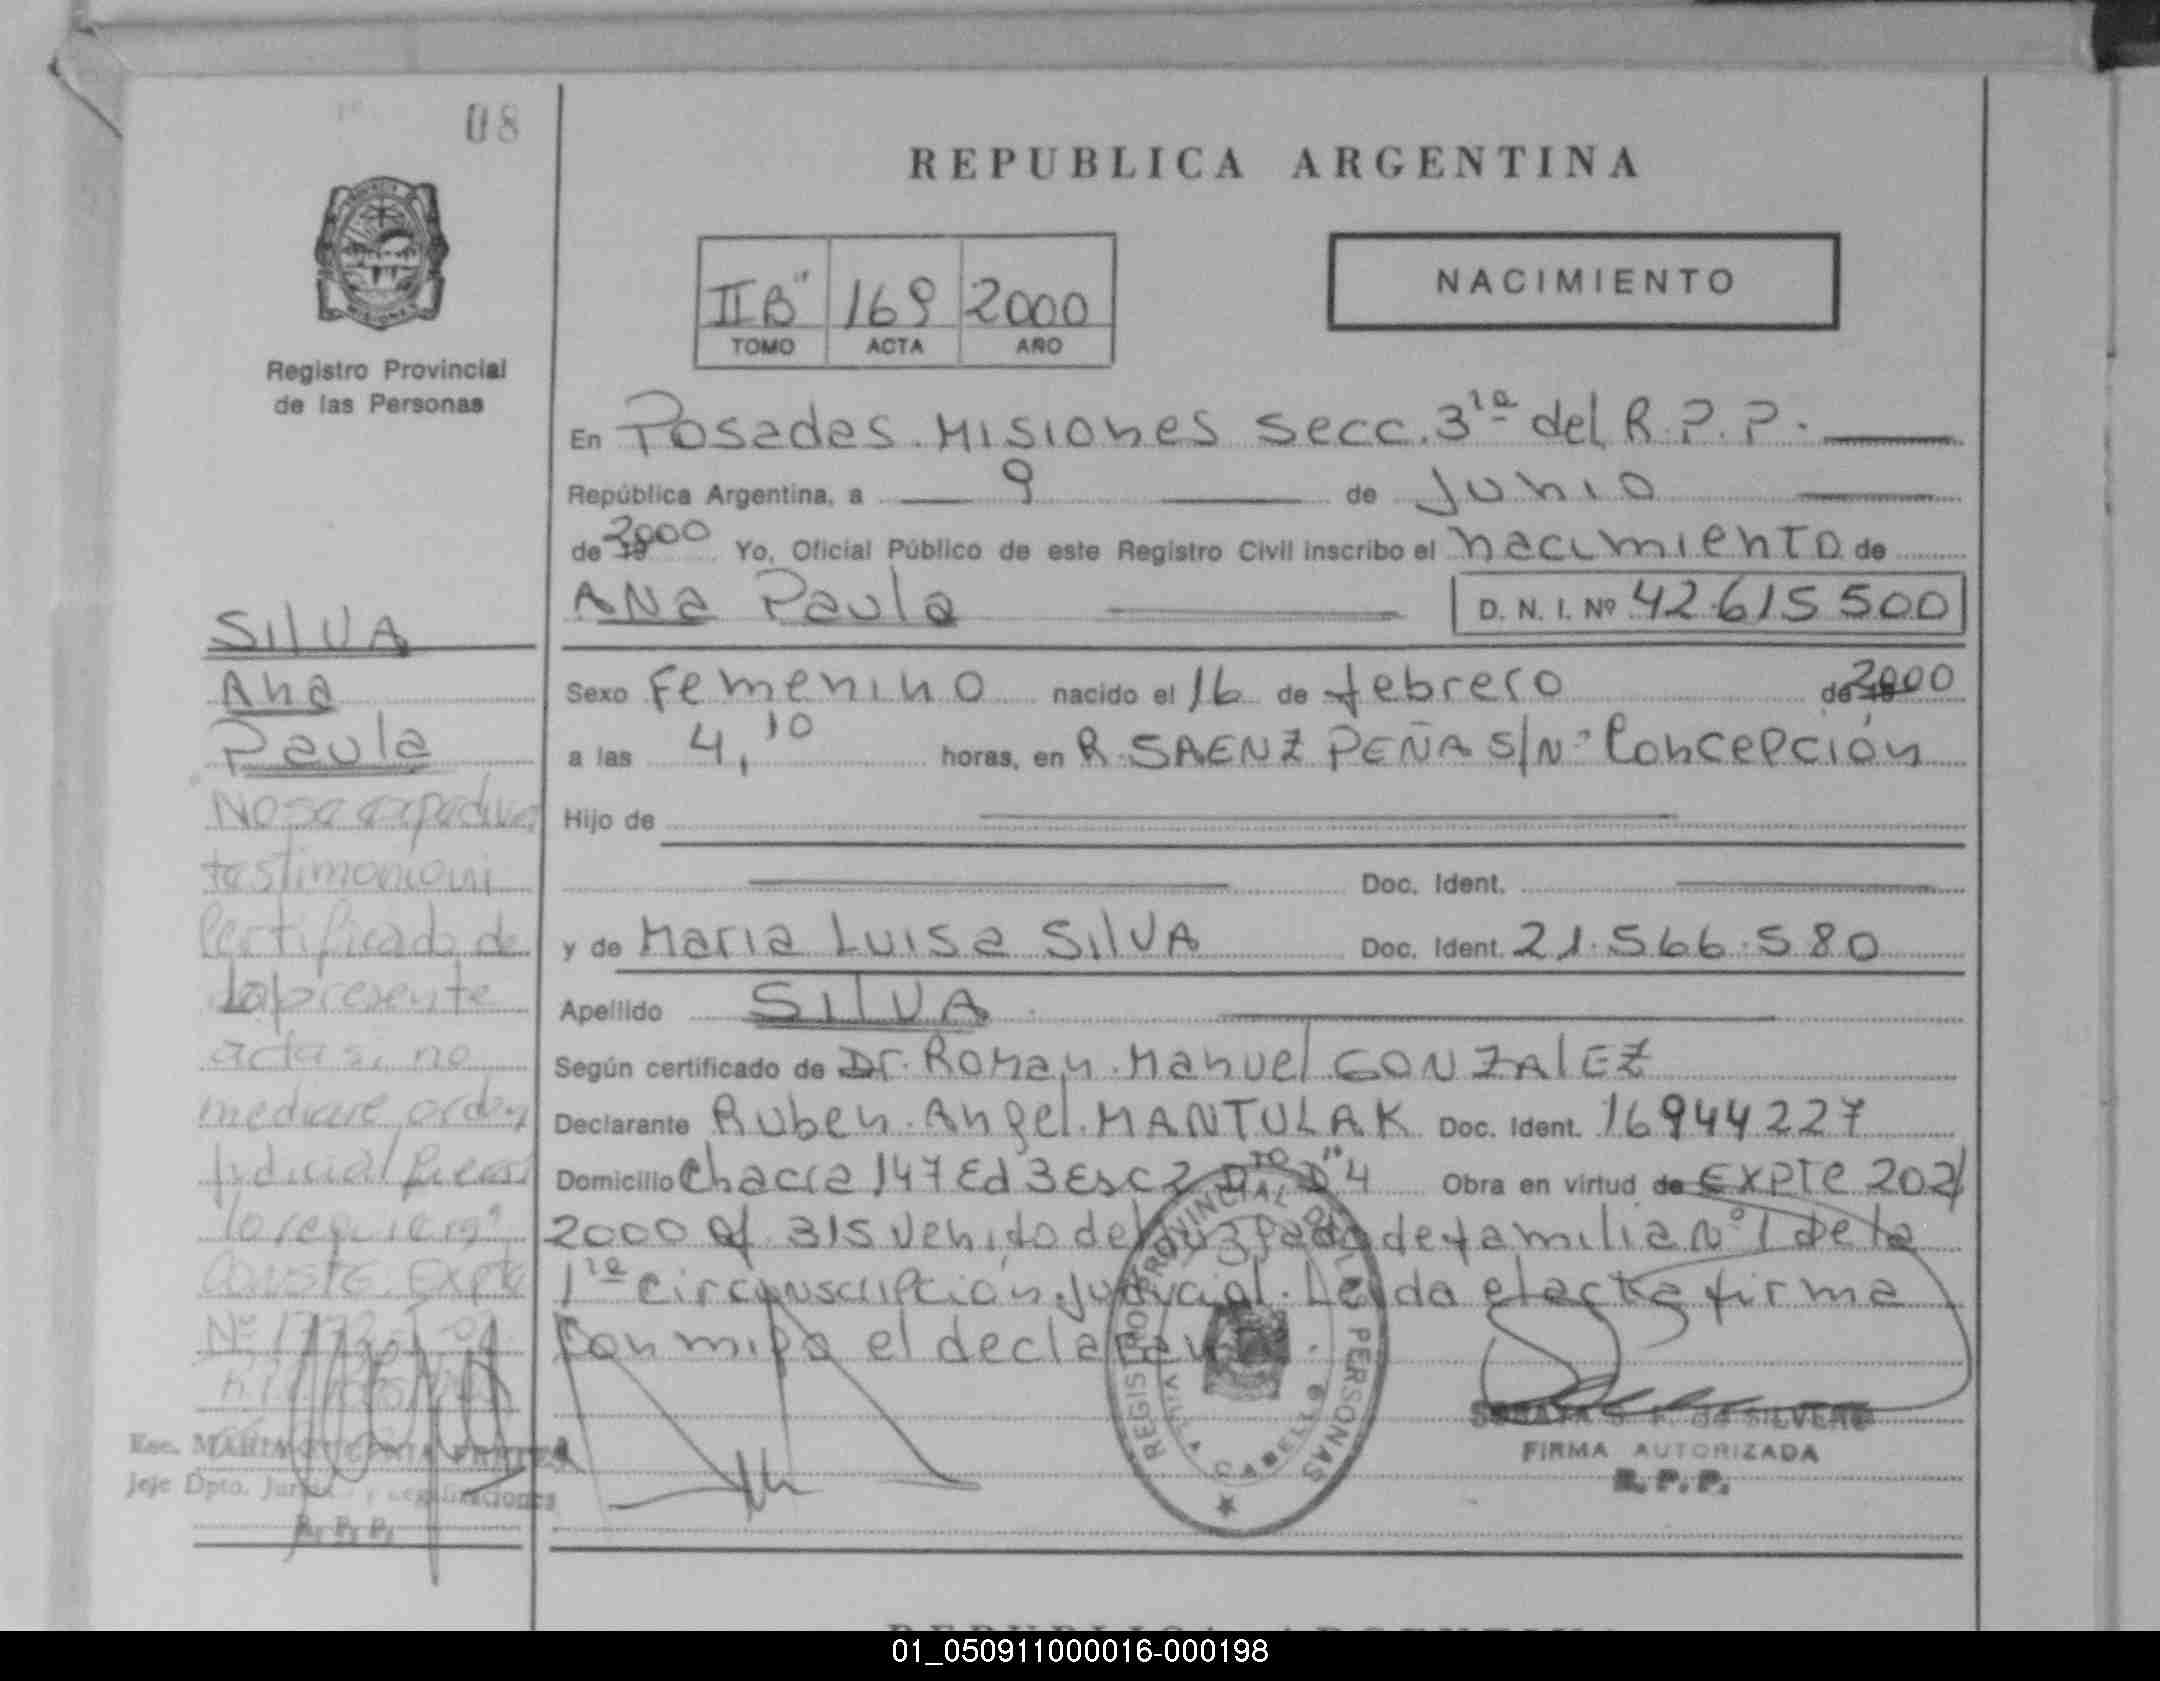 08
REPUBLICA ARGENTINA
II "B" 169 2000
TOMO ACTA AÑO
NACIMIENTO
Registro Provincial
de las Personas
En Posadas. Misiones secc. 3ra del R.P.P.
República Argentina, a 9 de Junio
de 2000 Yo, Oficial Público de este Registro Civil inscribo el nacimiento de
Ana Paula D. N. I. Nº 42.615 500
SIlVA
Ana
Paula
Sexo Femenino nacido el 16 de febrero de 2000
a las 4,10 horas, en R. SAENZ PEÑA S/Nº Concepción
Hijo de
Doc. Ident.
y de Maria Luisa SIlVA Doc. Ident. 21.566.580
Apellido SIlVA
Según certificado de Dr. Roman Manuel GONZAlEZ
Declarante Ruben Angel MANTULAK Doc. Ident. 16944227
Domicilio Chacra 147 Ed 3 Esc 2 Dto "D" 4 Obra en virtud de Expte 202/
2000 of. 315 venido del Juzgado de familia Nº 1 de la
1ra circunscripción Judicial. Leida el acta firma
con migo el declarante.
No se expedirá
testimonio ni
Certificado de
la presente
acta si no
mediare orden
Judicial que así
lo requiera
Conste. Expte
Nº
REGISTRO PROVINCIAL DE LAS PERSONAS
de SILVERO
FIRMA AUTORIZADA
R.P.P.
Esc. MARIA
Jefe Dpto.
R.P.P.
01_050911000016-000198